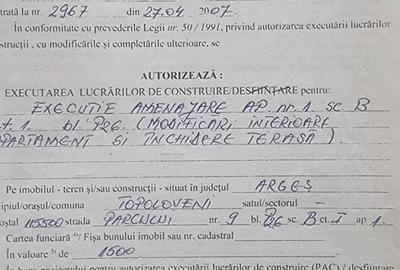 trată la nr. 2967 din 27.04. 2007.
În conformitate cu prevederile Legii nr. 50 / 1991, privind autorizarea executării lucrărilor
strucții , cu modificările și completările ulterioare, se
AUTORIZEAZĂ :
EXECUTAREA LUCRĂRILOR DE CONSTRUIRE/DESFIINȚARE pentru:
EXECUȚIE AMENAJARE AP. nr. 1. sc. B
t. 1. bl. P26. (MODIFICĂRI INTERIOARE
PARTAMENT ȘI ÎNCHIDERE TERASĂ).
Pe imobilul - teren și/sau construcții - situat în județul ARGEȘ
cipiul/orașul/comuna TOPOLOVENI satul/sectorul –
oștal 115500 strada PARCULUI nr. 9 bl. P26 sc. B et. I ap 1.
Cartea funciară / Fișa bunului imobil sau nr. cadastral
În valoare de 1500
autorizarea executării lucrărilor de construire (PAC) / desființare